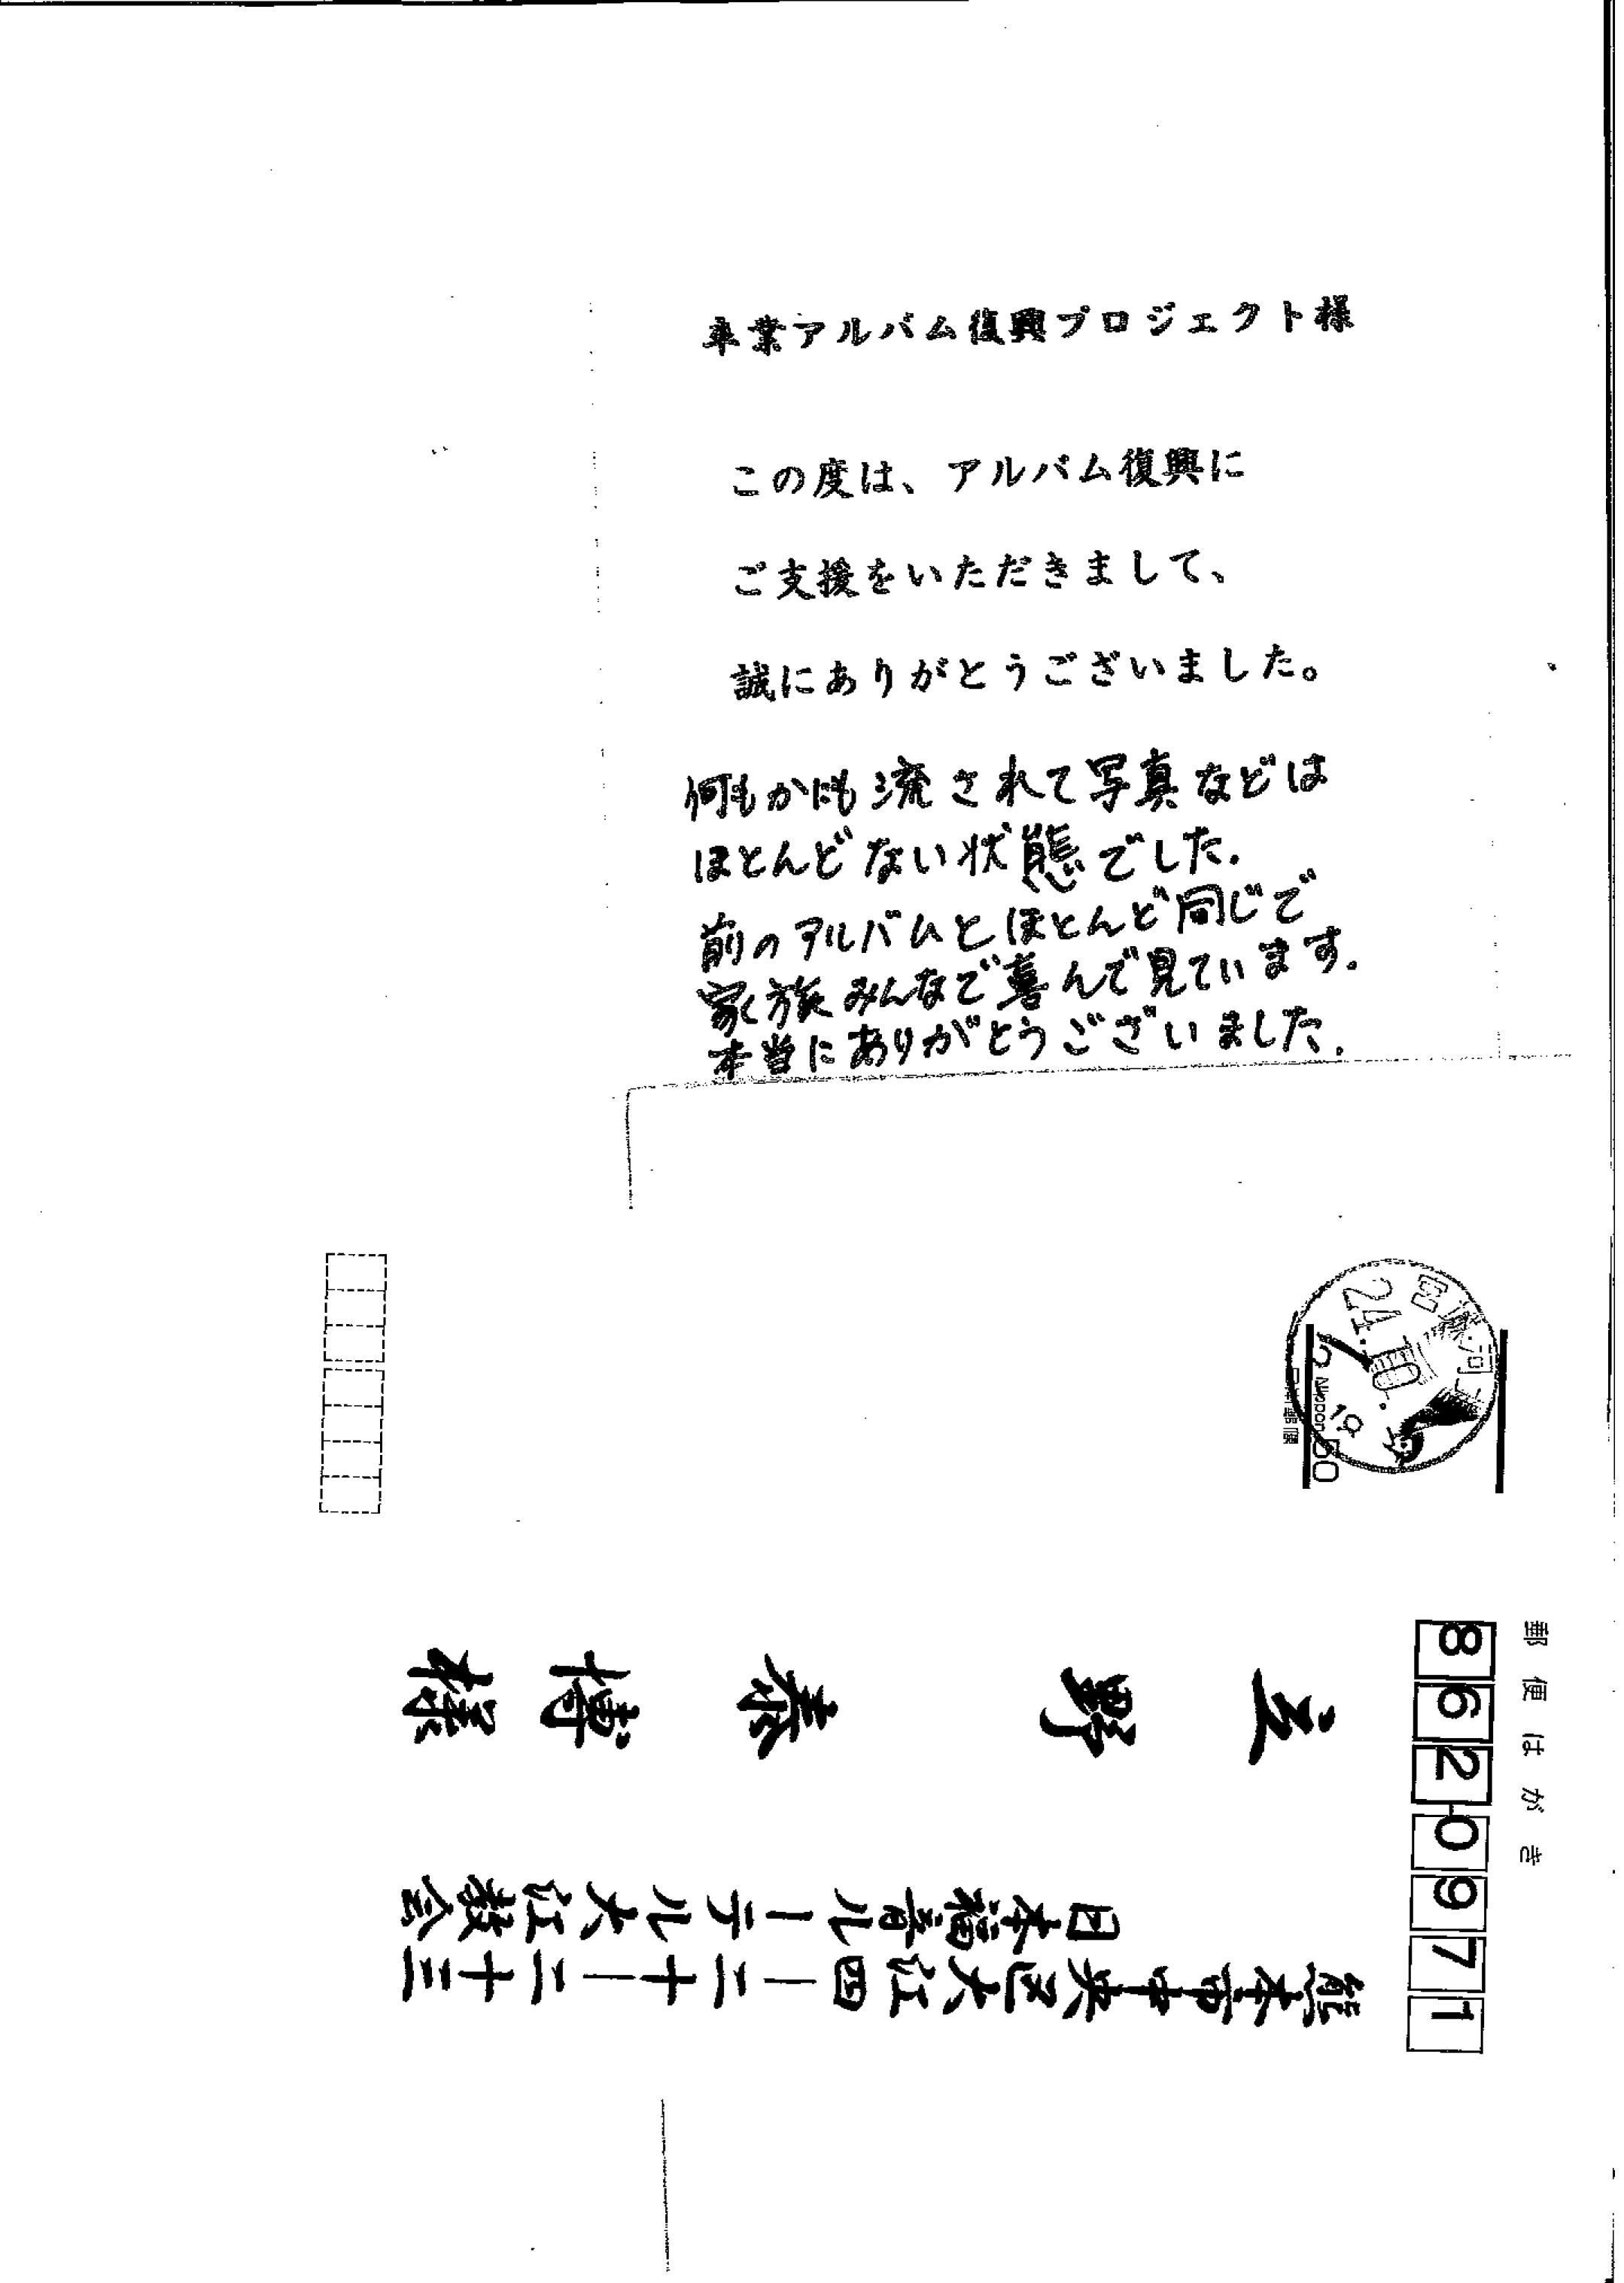 卒業アルバム復興プロジェクト様
この度は、アルバム復興に
ご支援をいただきまして、
誠にありがとうございました。
何もかにも流されて写真などは
ほとんどない状態でした.
前のアルバムとほとんど同じで
家族みんなで喜んで見ています.
本当にありがとうございました.
24.10.
Nippon 50
日本郵便
郵便はがき
8620971
熊本市中央区大江四ー二十ー二十三
日本福音ルーテル大江教会
立野泰博様